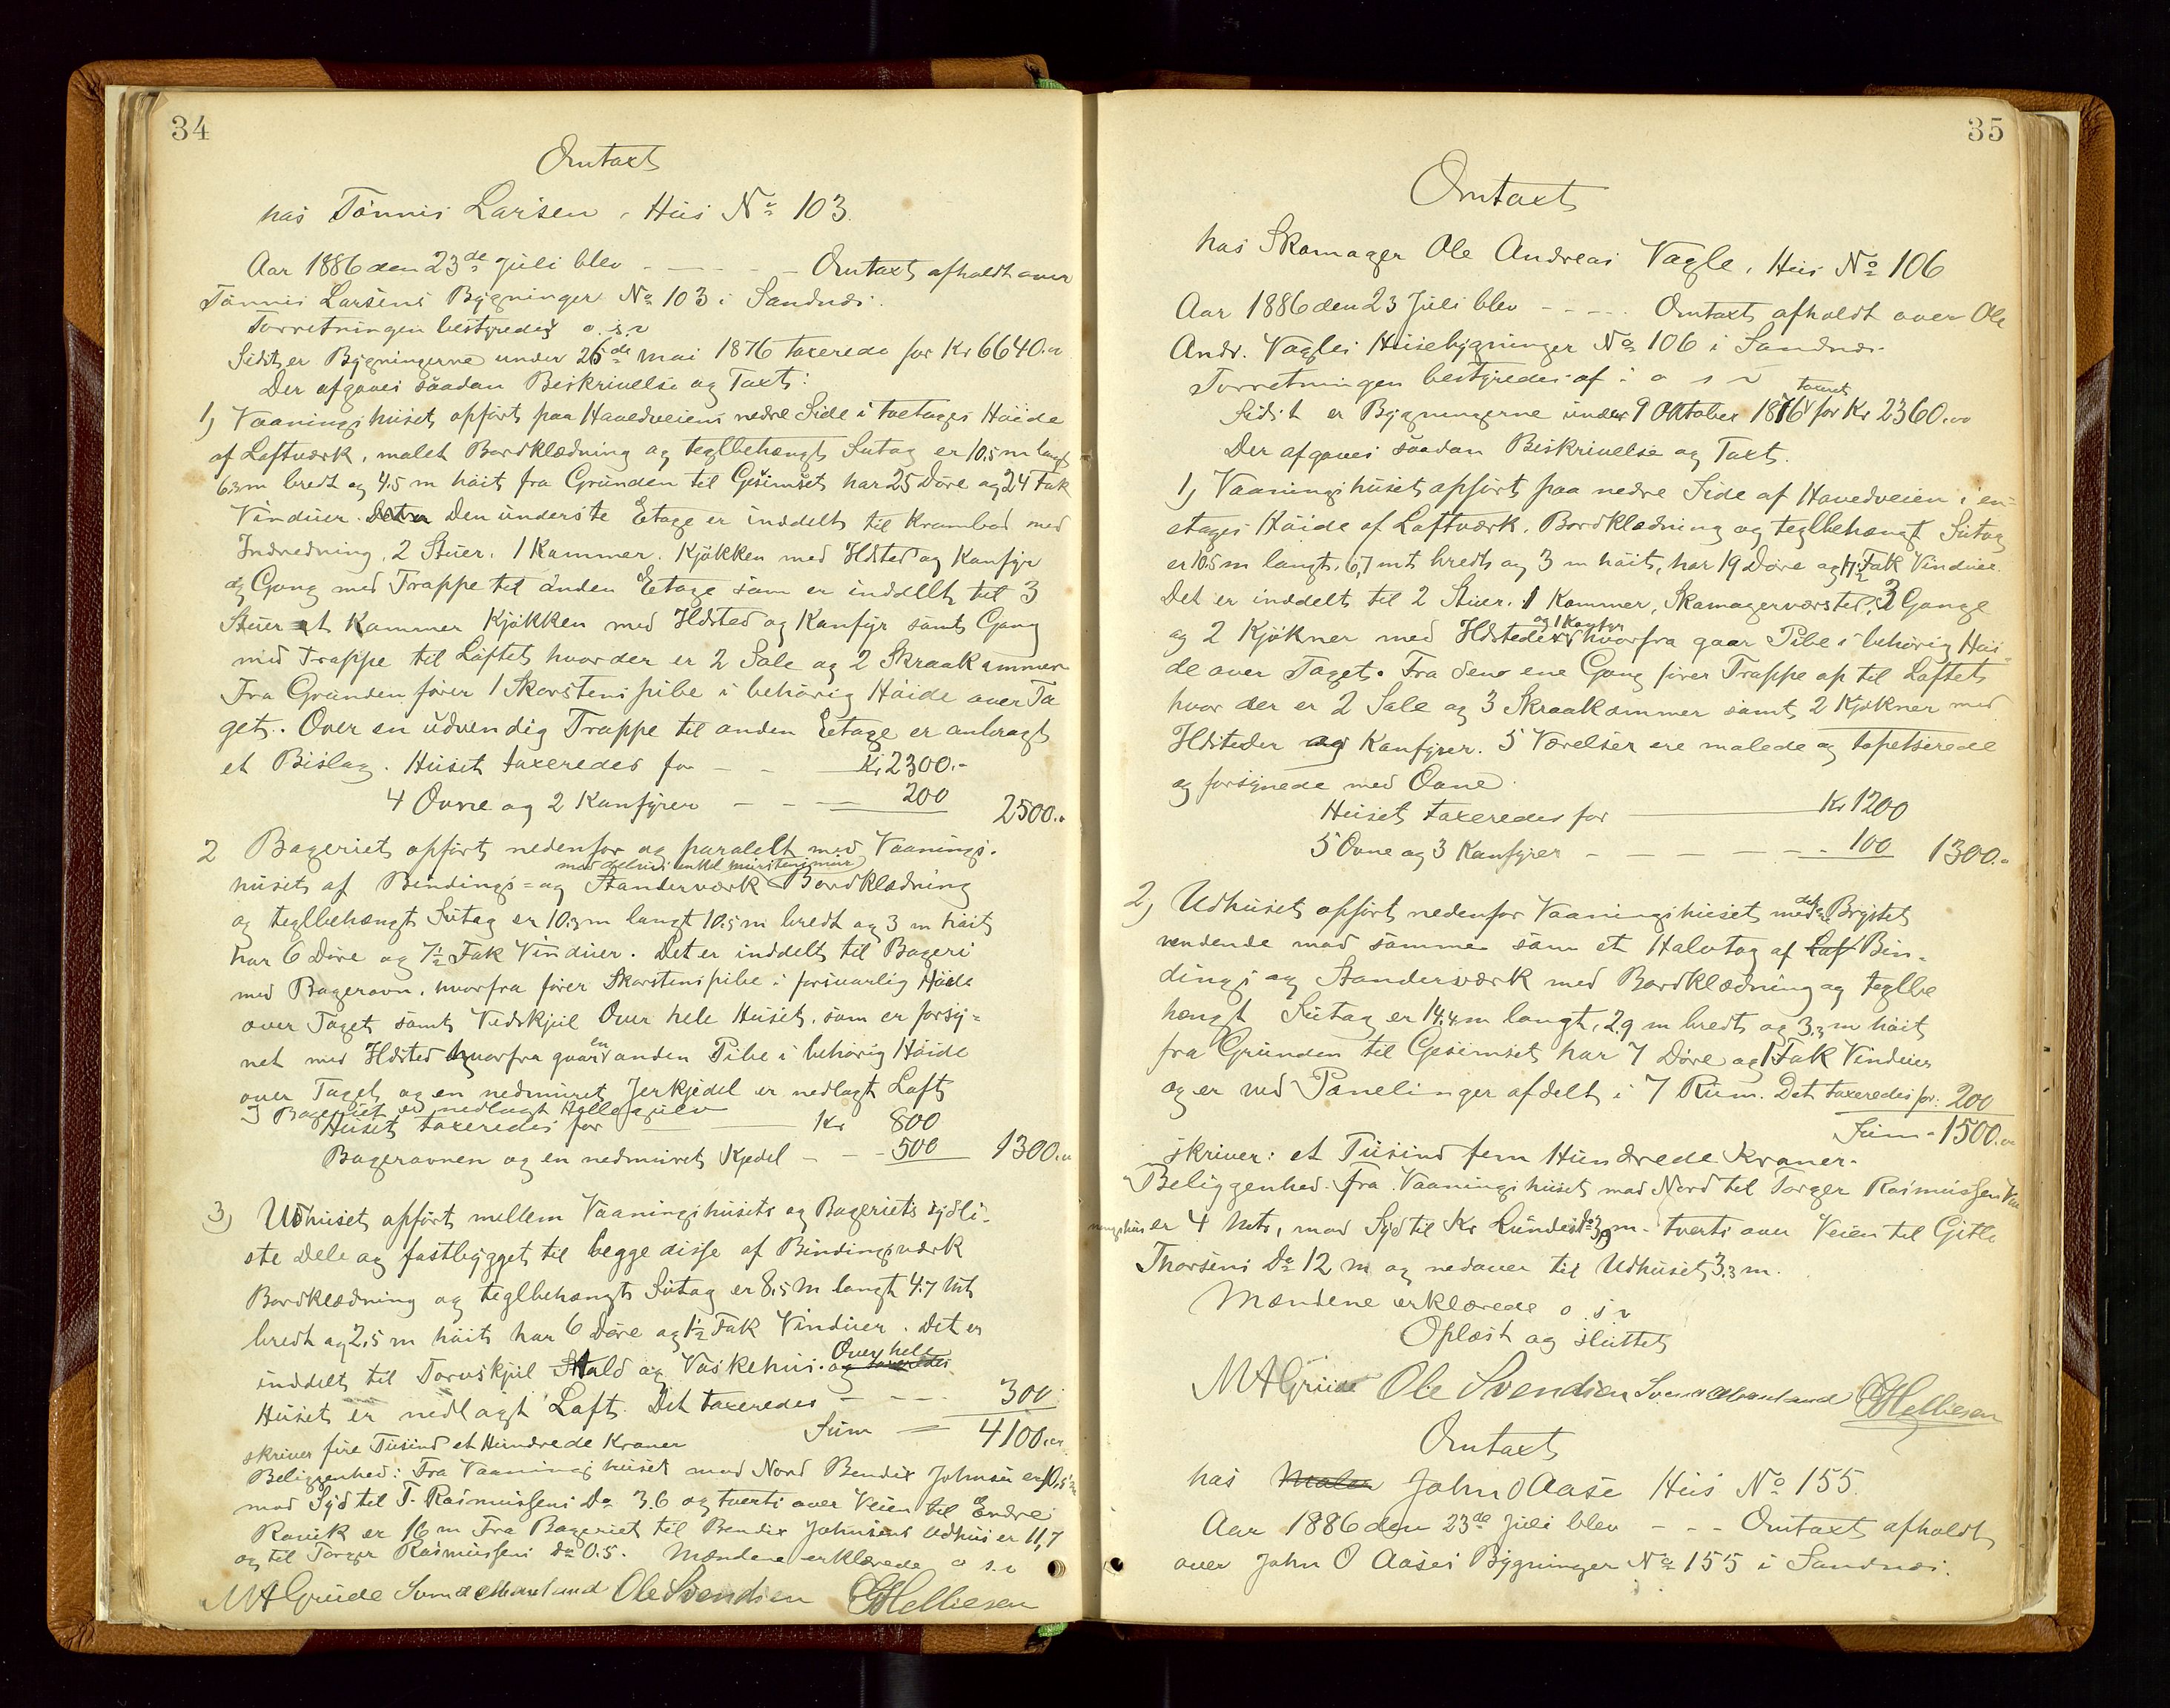 34
Omtaxt
hos Tönnis Larsen, Hus No 103.
Aar 1886 den 23de Juli blev - - - - Omtaxt afholdt over
Tönnis Larsens Bygninger No 103 i Sandnæs.
Forretningen bestyredes o. s. v
Sidst er Bygningerne under 26de Mai 1876 taxerede for Kr 6640.00
Der afgaves saadan Beskrivelse og Taxt:
1, Vaaningshuset opfört paa Hovedveiens nedre Side i toetages Höide
af Loftværk, malet Bordklædning og teglbehængt Sutag er 10,5 m langt
6.3 m bredt og 4.5 m höit fra Grunden til Gesimset har 25 Döre og 24 Fak
Vinduer. Den underste Etage er inddelt til Krambod med
Indredning, 2 Stuer, 1 Kammer, Kjökken med Ildsted og Komfyr
og Gang med Trappe til anden Etage som er inddelt til 3
Stuer et Kammer Kjökken med Ildsted og Komfyr samt Gang
med Trappe til Loftet hvor der er 2 Sale og 2 Skraakammer
Fra Grunden förer 1 Skorstenspibe i behörig Höide over Ta
get. Over en udvendig Trappe til anden Etage er anbragt
et Bislag. Huset taxeredes for - - Kr 2300.-
4 Ovne og 2 Komfyrer - - - 200 2500.00
2 Bageriet opfört nedenfor og paralelt med Vaanings-
med delvis enkel murstensmur
huset af Bindings- og Standerværk Bordklædning
og teglbehængt Sutag er 10.3 m langt 10.5 m bredt og 3 m höit
har 6 Döre og 7½ Fak Vinduer. Det er inddelt til Bageri
med Bagerovn, hvorfra förer Skorstenspibe i forsvarlig Höide
over Taget samt Vedskjul Over hele Huset, som er forsy-
net med Ildsted hvorfra gaar en anden Pibe i behörig Höide
over Taget og en nedmuret Jerkjedel er nedlagt Loft
I Bageriet er nedlagt Hellegulv
Huset taxeredes for - - Kr 800
Bagerovnen og en nedmuret Kjedel - - - 500 1300.00
3, Udhuset opfört mellem Vaaningshusets og Bageriets sydli-
ste Dele og fastbygget til begge disse af Bindingsværk
Bordklædning og teglbehængt Sutag er 8,5 m langt 4.7 mt
bredt og 2,5 m höit har 6 Döre og 1½ Fak Vinduer. Det er
inddelt til Torvskjul Stald og Vaskehus. og taxeredes Over hele
Huset er nedlagt Loft. Det taxeredes - - - 300
Sum = 4100.00
skriver fire Tusind et Hundrede Kroner
Beliggenhed: Fra Vaaningshuset mod Nord Bendix Johnsen er 10,5 m
mod Syd til T. Rasmussens Do 3.6 og tverts over Veien til Endre
Ravik er 16 m Fra Bageriet til Bendix Johnsens Udhus er 11,7
og til Torger Rasmussens do 0.5. Mændene erklærede o s. v
MA Grude Svend Ole Svendsen G Helliesen
35
Omtaxt
hos Skomager Ole Andreas Vagle, Hus No 106
Aar 1886 den 23 Juli blev - - - - Omtaxt afholdt over Ole
Andr. Vagles Husebygninger No 106 i Sandnæs.
Forretningen bestyredes af: o s v
Sidst er Bygningerne under 9 Oktober 1876 taxeret for Kr 2360.00
Der afgaves saadan Beskrivelse og Taxt.
1, Vaaningshuset opfört paa nedre Side af Hovedveien i en-
etages Höide af Loftværk, Bordklædning og teglbehængt Sutag
er 10.5 m langt, 6,7 mt bredt og 3 m höit, har 19 Döre og 17½ Fak Vinduer.
Det er inddelt til 2 Stuer, 1 Kammer, Skomagerværsted, 3 Gange
og 2 Kjökner med Ildsteder og 1 Komfyr hvorfra gaar Pibe i behörig Höi-
de over Taget. Fra den ene Gang förer Trappe op til Loftet
hvor der er 2 Sale og 3 Skraakammer samt 2 Kjökner med
Ildsteder og Komfyrer. 5 Værelser ere malede og tapetserede
og forsynede med Ovne.
Huset taxeredes for - Kr 1200
5 Ovne og 3 Komfyrer - - - - - - 100 1300.00
2, Udhuset opfört nedenfor Vaaningshuset med det Brystet
vendende mod samme som et Halvtag af Laf Bin-
dings og Standerværk med Bordklædning og teglbe
hængt Sutag er 14.4 m langt, 2.9 m bredt og 3.3 m höit
fra Grunden til Gesimset har 7 Döre og 1 Fak Vinduer
og er ved Panelinger afdelt i 7 Rum. Det taxeredes for: 200
Sum - 1500.00
skriver: et Tusind fem Hundrede Kroner.
Beliggenhed. Fra Vaaningshuset mod Nord til Torger Rasmussen Vaa
ningshus er 4 mt, mod Syd til Kr Lundes do 3,9 m. tverts over Veien til Gitle
Thorsens Do 12 m og nedover til Udhuset 3.3 m.
Mændene erklærede o. s. v
Oplæst og sluttet
MA Grude Ole Svendsen Svend G Helliesen
Omtaxt
hos Maler John O Aase Hus No 155.
Aar 1886 den 23de Juli blev - - - Omtaxt afholdt
over John O Aases Bygninger No 155 i Sandnæs.